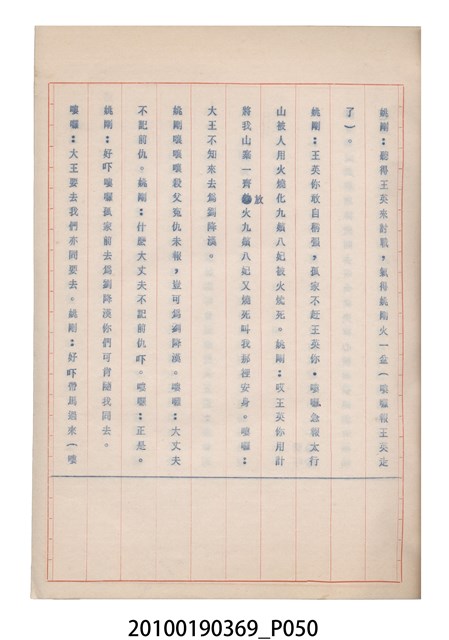 姚剛：聽得王英來討戰，氣得姚剛火一盆（嘍囉報王英走
了）。
姚剛：王英你敢自稱強，孤家不赶王英你。嘍囉急報太行
山被人用火燒化九頗八妃被火燒死。姚剛：哎王英你用計
將我山寨一齊放火九頗八妃又燒死叫我那裡安身。嘍囉：
大王不知來去為劉降漢。
姚剛嘍嘍嘍殺父冤仇未報，豈可為劉降漢。嘍囉：大丈夫
不記前仇。姚剛：什麼大丈夫不記前仇吓。嘍囉：正是。
姚剛：好吓嘍囉孤家前去為劉降漢你們可肯隨我同去。
嘍囉：大王要去我們亦同要去。姚剛：好吓帶馬過來（嘍
20100190369_P050